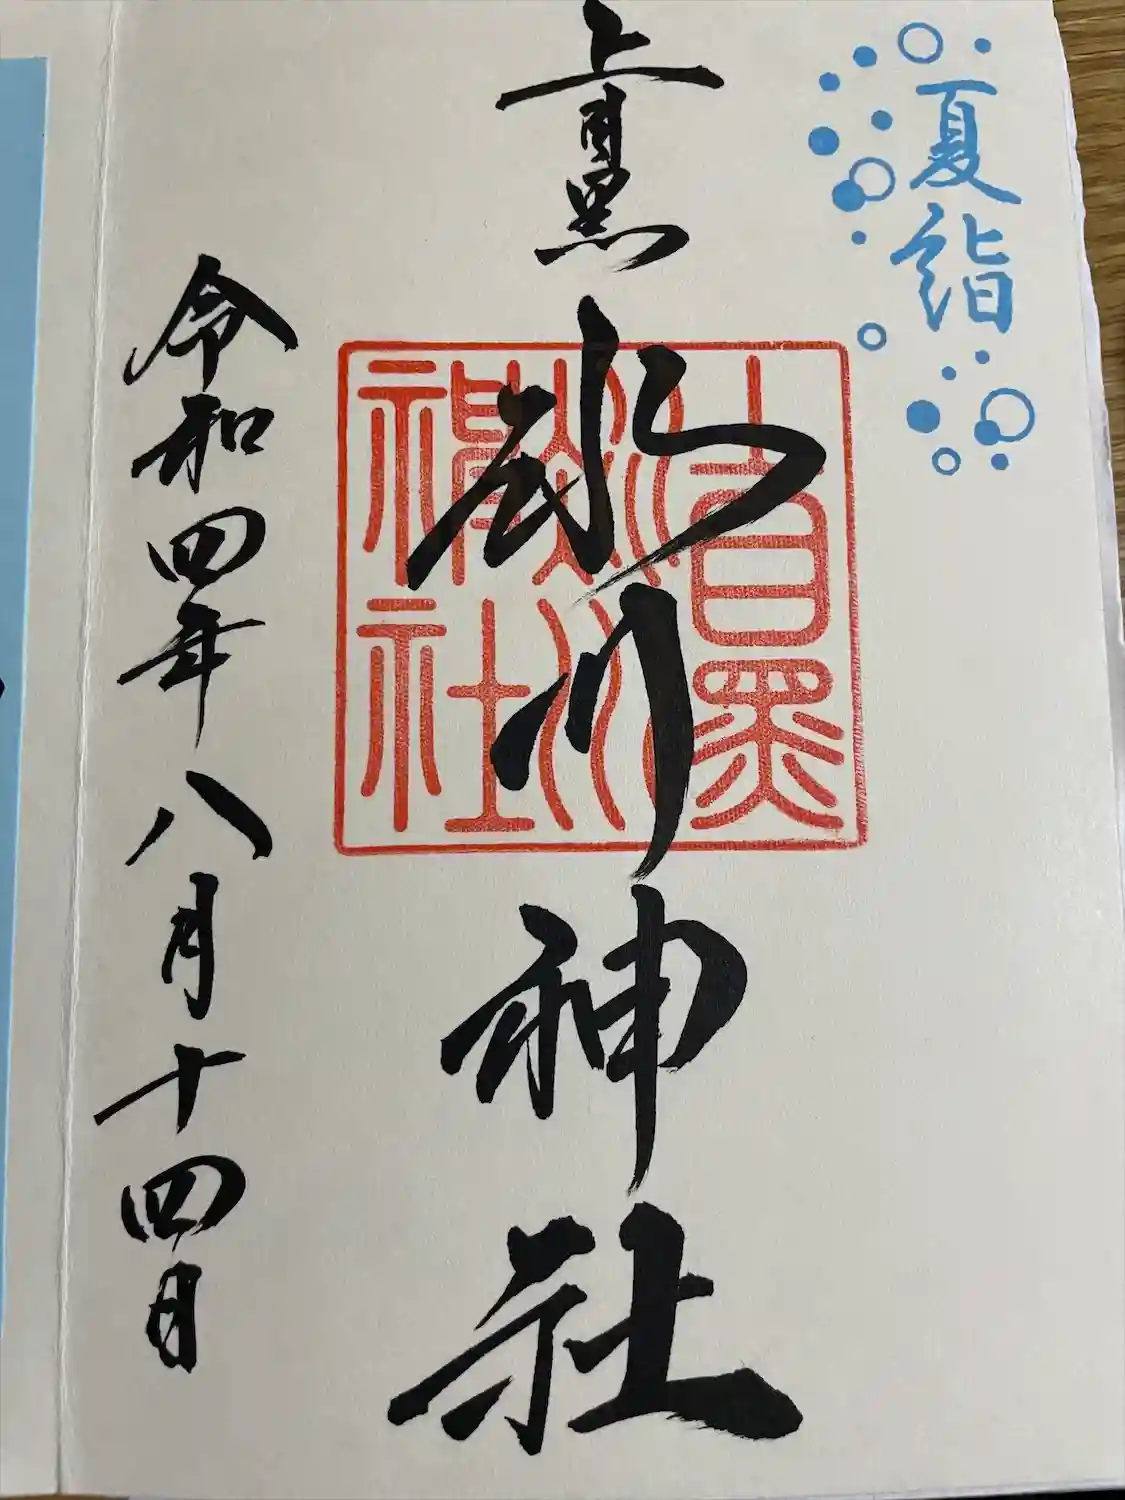 夏詣
上目黒
氷川神社
上目黒
氷川
神社
令和四年八月十四日